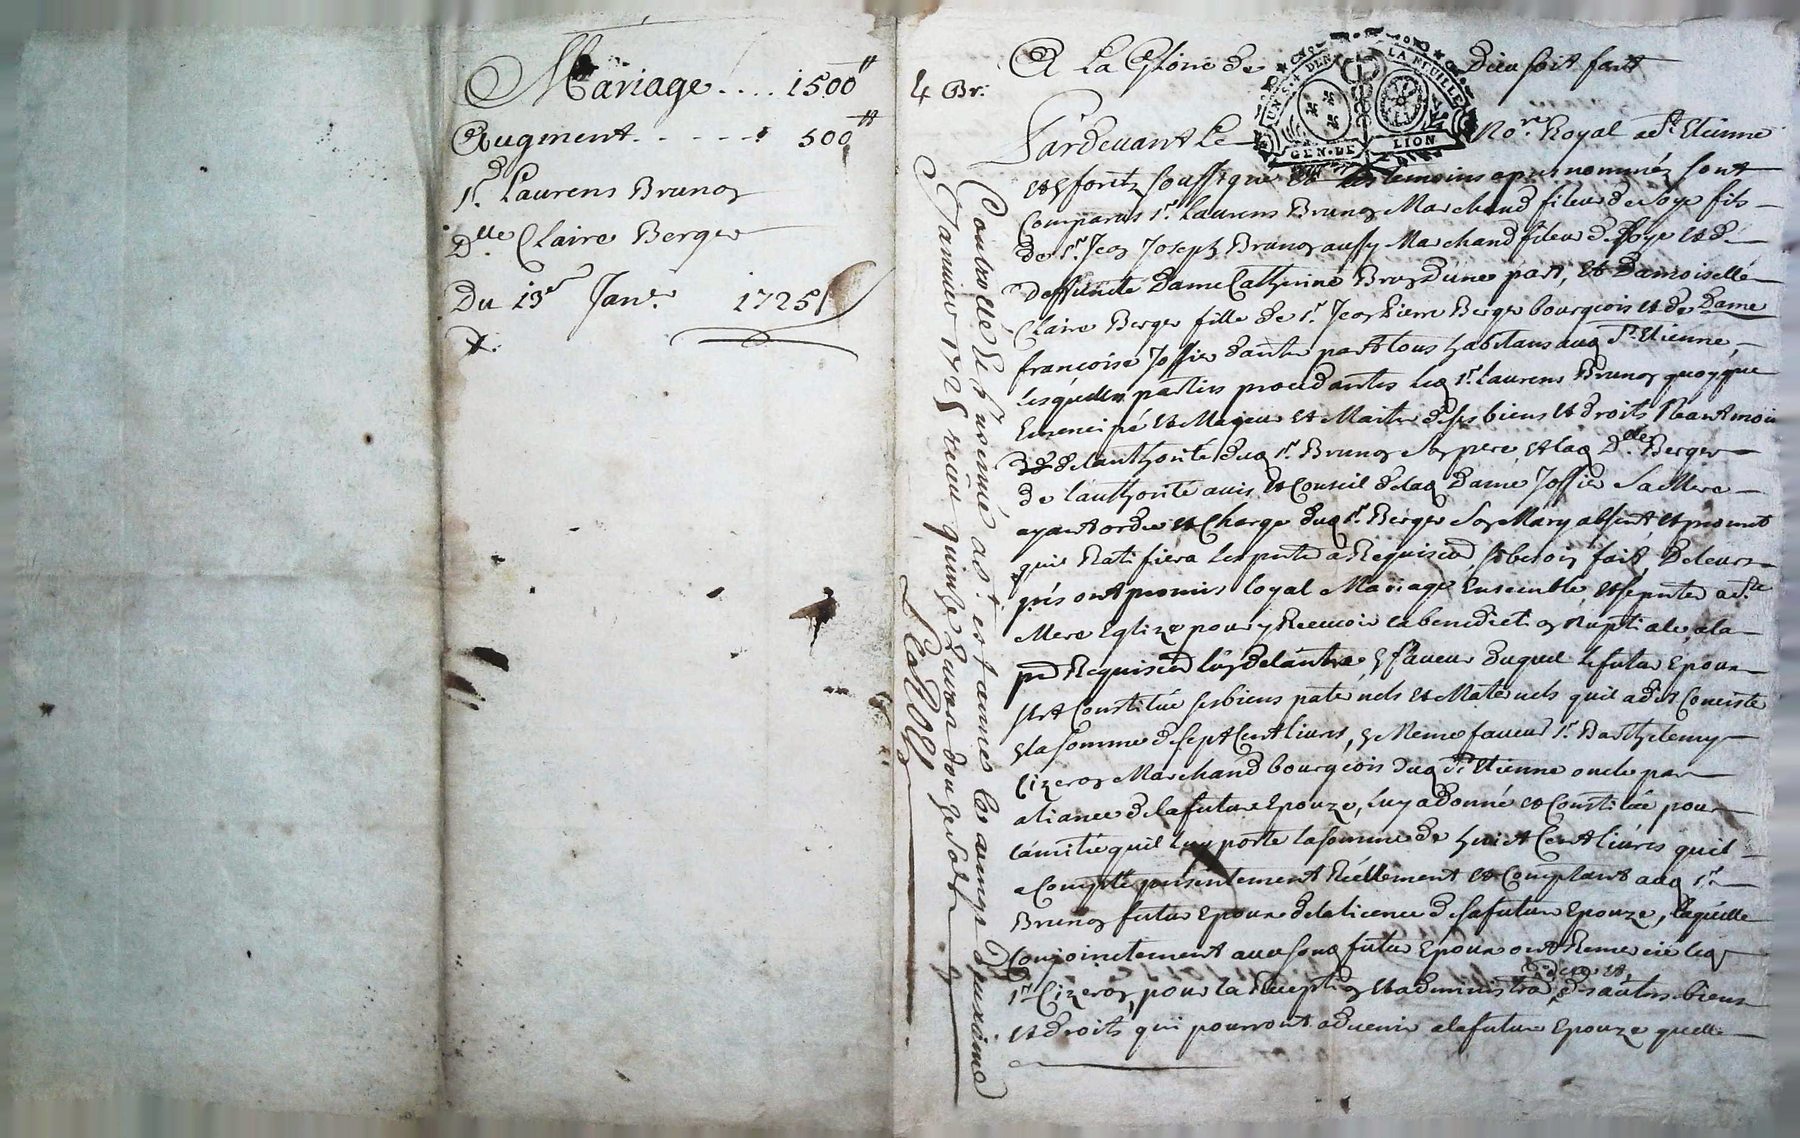 Mariage.... 1500ᵗᵗ
Augment..... 500ᵗᵗ
Sʳ. Laurens Brunon
Dˡˡᵉ Claire Berger
Du 13ᵉ Janʳ. 1725
4 Br:
A La Gloire de Dieu soit fait
UN S. 4 DEN. LA FEUILLE
GEN. DE LION
Pardevant Le Noʳᵉ Royal a Sᵗ Etienne
en forêtz soussigné et les temoins apres nomméz sont
Comparus sʳ. Laurens Brunon Marchand fileur de soye fils
de sʳ. Jean Joseph Brunon aussy Marchand fileur de soye et de
deffuncte Dame Catherine Bron dune part, et Damoiselle
Claire Berger fille de sʳ. Jean Pierre Berger bourgeois et de Dame
francoise Joffier dautre part tous habitans aud Sᵗ Etienne,
lesquelles parties procedantes led sʳ. Laurens Brunon quoyque
Emencipé et Majeur et Maitre de ses biens et droits Neantmoins
de lauthorité dud sʳ. Brunon son pere, et lad Dˡˡᵉ Berger
de lauthorité avis et Conseil de lad Dame Joffier sa Mere
ayant ordre et Charge dud sʳ. Berger son Mary absent et promet
quil Ratifiera les pntes a Requision, si besoin fait, de leurs
grés ont promis loyal Mariage Ensemble, et se pnter a Sᵗᵉ
Mere Eglize pour y Recevoir la benediction Nuptiale, a la
pʳᵉ Requision lun de lautre, En faveur duquel le futur Epoux
sest Constitué ses biens paternels et Maternels quil a dit Consister
En la somme de sept Cent livres, En Meme faveur sʳ. Barthelemy
Cizeron Marchand bourgeois dud Sᵗ Etienne oncle par
aliance de la future Epouze, luy a donné et Constitué pour
lamitié quil luy porte la somme de huict Cent livres quil
a Compté presentement Réellement et Comptant aud sʳ.
Brunon futur Epoux de la licence de sa future Epouze, laquelle
Conjoinctement avec sond futur Epoux ont Remercié led
sʳ Cizeron, pour la Reception et administraõn des autres biens
et droits qui pourront advenir a la future Epouze quelle
Controllé Et Insinué a Sᵗ. etienne le
Janvier 1725 receu quinze livres douze sols